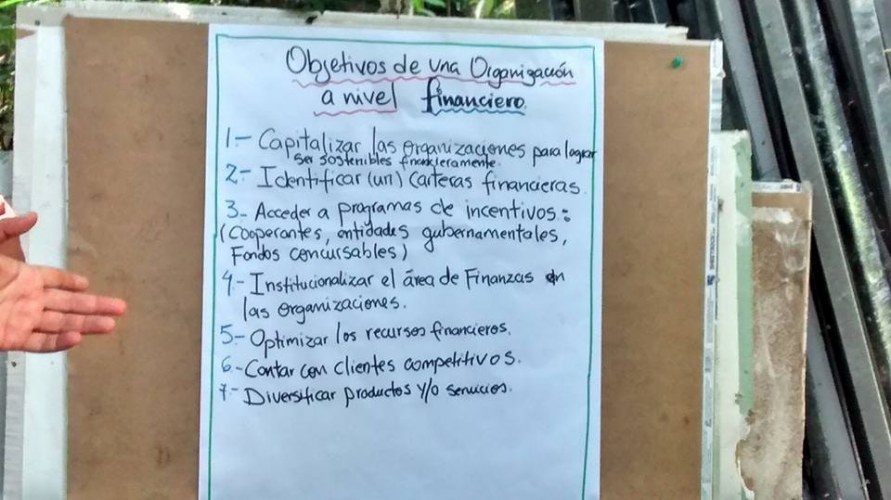 Objetivos de una Organización
a nivel financiero.
1.- Capitalizar las organizaciones para lograr
ser sostenibles financieramente.
2.- Identificar (un) carteras financieras.
3.- Acceder a programas de incentivos:
(Cooperantes, entidades gubernamentales,
Fondos concursables)
4.- Institucionalizar el área de Finanzas en
las organizaciones.
5.- Optimizar los recursos financieros.
6.- Contar con clientes competitivos.
7.- Diversificar productos y/o servicios.